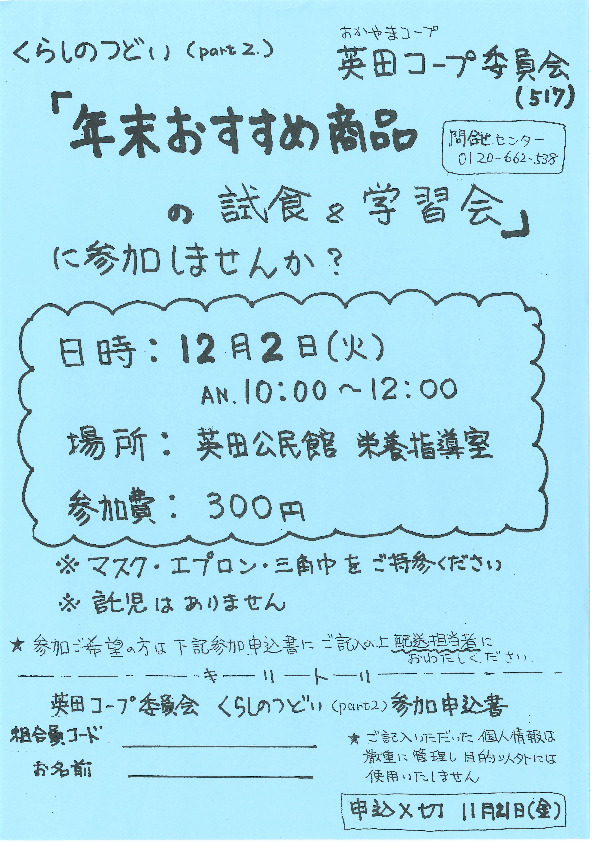 くらしのつどい (part 2.)
おかやまコープ
英田コープ委員会
(517)
「年末おすすめ商品
問合せセンター
0120-662-538
の試食&学習会」
に参加しませんか?
日時: 12月2日(火)
AM.10:00~12:00
場所: 英田公民館 栄養指導室
参加費: 300円
※ マスク・エプロン・三角巾をご持参ください
※ 託児はありません
★ 参加ご希望の方は下記参加申込書にご記入の上配送担当者に
おわたしください。
キ リ ト リ
英田コープ委員会 くらしのつどい (part2) 参加申込書
組合員コード
お名前
★ ご記入いただいた個人情報は
厳重に管理し目的以外には
使用いたしません
申込〆切 11月21日(金)